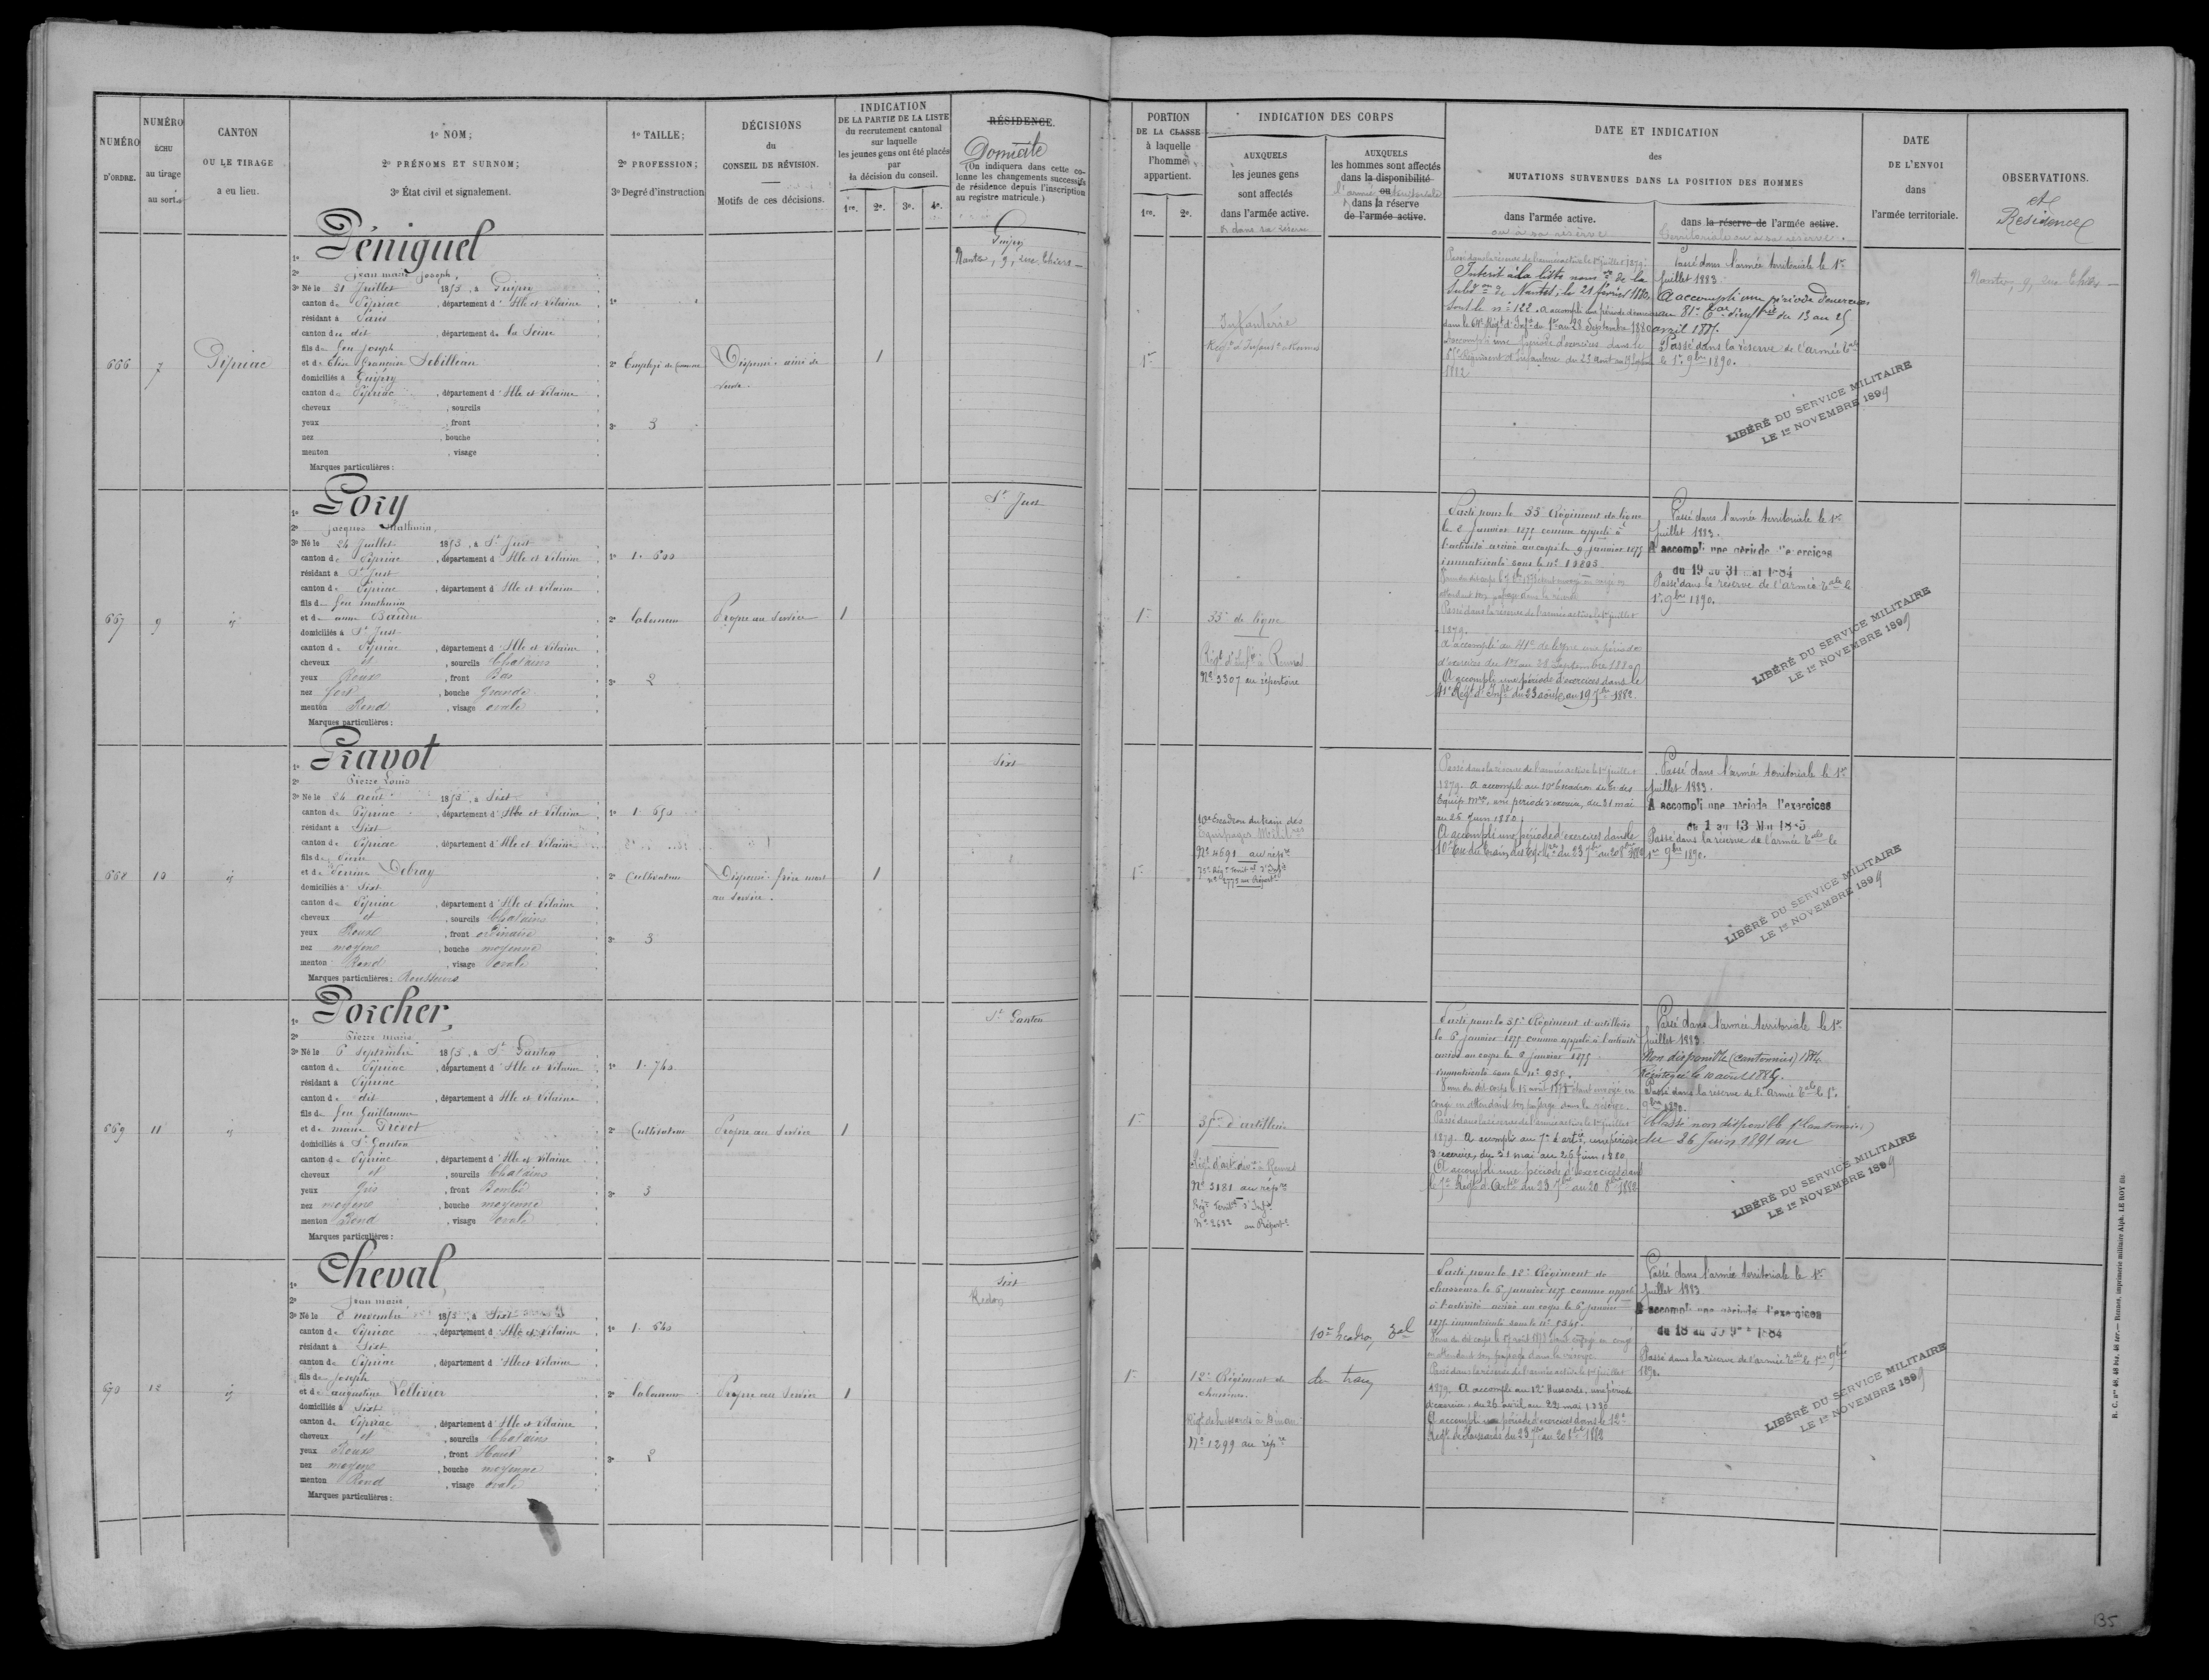 NUMÉRO D'ORDRE.
NUMÉRO ÉCHU au tirage au sort.
CANTON OU LE TIRAGE a eu lieu.
1º NOM;
2º PRÉNOMS ET SURNOM;
3º État civil et signalement.
1º TAILLE;
2º PROFESSION;
3º Degré d'instruction
DÉCISIONS
du
CONSEIL DE RÉVISION.
Motifs de ces décisions.
INDICATION
DE LA PARTIE DE LA LISTE
du recrutement cantonal
sur laquelle
les jeunes gens ont été placés
par
la décision du conseil.
1re. 2e. 3e. 4e.
RÉSIDENCE.
Domicile
(On indiquera dans cette co-
lonne les changements successifs
de résidence depuis l'inscription
au registre matricule.)
PORTION
DE LA CLASSE
à laquelle
l'homme
appartient.
1re. 2e.
INDICATION DES CORPS
AUXQUELS
les jeunes gens
sont affectés
dans l'armée active.
& dans sa réserve
AUXQUELS
les hommes sont affectés
dans la disponibilité
ou
l'armée territoriale
dans la réserve
de l'armée active.
DATE ET INDICATION
des
MUTATIONS SURVENUES DANS LA POSITION DES HOMMES
dans l'armée active.
ou à sa réserve
dans la réserve de l'armée active.
territoriale ou à sa réserve.
DATE
DE L'ENVOI
dans
l'armée territoriale.
OBSERVATIONS.
et
Résidence
666
7
Pipriac
1º Péniguel
2º Jean marie Joseph,
3º Né le 31 Juillet 1853, à Guipry
canton de Pipriac, département d'Ille et Vilaine
résidant à Paris
canton du dit, département de la Seine
fils de feu Joseph
et de Élise Françoise Sébilleau
domiciliés à Guipry
canton de Pipriac, département d'Ille et Vilaine
cheveux, sourcils
yeux, front
nez, bouche
menton, visage
Marques particulières:
1º
2º Employé de Commerce
3º 3
Dispensé. aîné de
veuve.
1
Guipry
Nantes, 9, rue Thiers
1re
Infanterie
Régt d'Infante à Rennes
Passé dans la réserve de l'armée active le 1er juillet 1879.
Inscrit à la liste nomve de la
Subdon de Nantes, le 21 février 1880,
sous le nº 122. A accompli une période d'exercices
dans le 64e Régt d'Infie du 1er au 28 Septembre 1880
accompli une période d'exercices dans le
Régiment d'Infanterie du 23 Août au 19 Septembre
1882
Passé dans l'armée territoriale le 1er
Juillet 1883.
A accompli une période d'exercices
au 81e d'infrie du 13 au 25
avril 1887.
Passé dans la réserve de l'armée Tale
le 1er 9bre 1890.
LIBÉRÉ DU SERVICE MILITAIRE
LE 1er NOVEMBRE 1899
Nantes, 9, rue Thiers
667
9
id
1º Gory
2º Jacques Mathurin,
3º Né le 24 Juillet 1853, à St Just
canton de Pipriac, département d'Ille et Vilaine
résidant à St Just
canton de Pipriac, département d'Ille et Vilaine
fils de feu mathurin
et de anne Baudu
domiciliés à St Just
canton de Pipriac, département d'Ille et Vilaine
cheveux et, sourcils Châtains
yeux Roux, front Bas
nez fort, bouche Grande
menton Rond, visage ovale
Marques particulières:
1º 1. 600
2º laboureur
3º 2
Propre au Service
1
St Just
1re
35e de ligne
Régt d'Inftie à Rennes
Nº 3307 au répertoire
Parti pour le 35e Régiment de ligne
le 2 Janvier 1875 comme appelé à
l'activité arrivé au corps le 9 janvier 1875
immatriculé sous le nº
attendant son passage dans la réserve
Passé dans la réserve de l'armée active le 1er juillet
1879.
A accompli au 41e de ligne une période
d'exercices du 1er au 28 Septembre 1880
A accompli une période d'exercices dans le
41e Régt d'Infie du 23 août au 19 7bre 1882.
Passé dans l'armée territoriale le 1er
Juillet 1883.
A accompli une période d'exercices
du 19 au 31 mai 1884
Passé dans la réserve de l'armée Tale le
1er 9bre 1890.
LIBÉRÉ DU SERVICE MILITAIRE
LE 1er NOVEMBRE 1899
668
10
id
1º Gravot
2º Pierre Louis
3º Né le 24 août 1853, à Sixt
canton de Pipriac, département d'Ille et Vilaine
résidant à Sixt
canton de Pipriac, département d'Ille et Vilaine
fils de Pierre
et de Perrine Debray
domiciliés à Sixt
canton de Pipriac, département d'Ille et Vilaine
cheveux et, sourcils Châtains
yeux Roux, front ordinaire
nez moyen, bouche moyenne
menton Rond, visage ovale
Marques particulières: Rousseurs
1º 1. 650
2º Cultivateur
3º 3
Dispensé. frère mort
au Service.
1
Sixt
1re
10e Escadron du train des
Équipages Militres
Nº 4691 au répre
Passé dans la réserve de l'armée active le 1er juillet
1879. A accompli au 10e Escadron du Tr. des
Équip. Mres, une période d'exercices, du 31 mai
au 26 Juin 1880
A accompli une période d'exercices dans le
10e Esc. du train des Eq. Mres du 23 7bre au 20 8bre 1882
Passé dans l'armée territoriale le 1er
Juillet 1883.
A accompli une période d'exercices
du 1 au 13 Mai 1885
Passé dans la réserve de l'armée Tale le
1er 9bre 1890.
LIBÉRÉ DU SERVICE MILITAIRE
LE 1er NOVEMBRE 1899
669
11
id
1º Porcher,
2º Pierre marie
3º Né le 6 Septembre 1853, à St Ganton
canton de Pipriac, département d'Ille et Vilaine
résidant à Pipriac
canton du dit, département d'Ille et Vilaine
fils de feu Guillaume
et de marie Prévot
domiciliés à St Ganton
canton de Pipriac, département d'Ille et Vilaine
cheveux et, sourcils Châtains
yeux Gris, front Bombé
nez moyen, bouche moyenne
menton Rond, visage ovale
Marques particulières:
1º 1. 740
2º Cultivateur
3º 3
Propre au Service
1
St Ganton
1re
35e d'artillerie
Régt d'artie à Rennes
Nº 3181 au répre
Régt Territal d'Infie
Nº 2632 au Répertre
Parti pour le 35e Régiment d'artillerie
le 6 janvier 1875 comme appelé à l'activité
arrivé au corps le 8 janvier 1875
immatriculé sous le nº 935.
congé en attendant son passage dans la réserve.
Passé dans la réserve de l'armée active le 1er juillet
1879. A accompli au 7e d'artie, une période
d'exercices, du 31 mai au 26 Juin 1880
A accompli une période d'exercices dans
le 7e Régt d'Artie du 23 7bre au 20 8bre 1882
Passé dans l'armée territoriale le 1er
Juillet 1883.
Non disponible (cantonnier) 1884
Réintégré le 10 août 1885.
Passé dans la réserve de l'armée Tale le 1er
9bre 1890.
Classé non disponible (Cantonnier)
du 26 Juin 1891 au
LIBÉRÉ DU SERVICE MILITAIRE
LE 1er NOVEMBRE 1899
670
12
id
1º Cheval,
2º Jean marie
3º Né le 8 novembre 1853, à Sixt
canton de Pipriac, département d'Ille et Vilaine
résidant à Sixt
canton de Pipriac, département d'Ille et Vilaine
fils de Joseph
et de augustine Vollivier
domiciliés à Sixt
canton de Pipriac, département d'Ille et Vilaine
cheveux et, sourcils Châtains
yeux Roux, front Haut
nez moyen, bouche moyenne
menton Rond, visage ovale
Marques particulières:
1º 1. 640
2º laboureur
3º 2
Propre au Service
1
Sixt
Redon
1re
12e Régiment de
chasseurs.
Régt de hussards à Dinan
Nº 1299 au répre
10e Escadron
du train
Parti pour le 12e Régiment de
chasseurs le 6 janvier 1875 comme appelé
à l'activité arrivé au corps le 6 janvier
1875 immatriculé sous le nº
en attendant son passage dans la réserve
Passé dans la réserve de l'armée active le 1er juillet
1879. A accompli au 12e Hussards, une période
d'exercices, du 26 avril au 22 mai 1880
A accompli une période d'exercices dans le 12e
Régt de Hussards du 23 7bre au 20 8bre 1882
Passé dans l'armée territoriale le 1er
Juillet 1883
A accompli une période d'exercices
du 18 au 30 9bre 1884
Passé dans la réserve de l'armée Tale le 1er 9bre
1890.
LIBÉRÉ DU SERVICE MILITAIRE
LE 1er NOVEMBRE 1899
R. C. nos 48, 48 bis, 48 ter. — Rennes, imprimerie militaire Alph. LE ROY fils
135